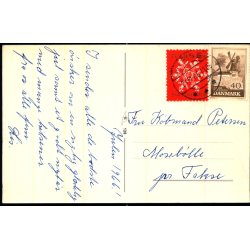 Julen 1966!
Vi sender alle de bedste
ønsker om en rigtig glædelig
jul samt et godt nytår
med mange hilsener
fra os alle
DANMARK
40
Fru Købmand Petersen
Mosebølle
pr. Fakse